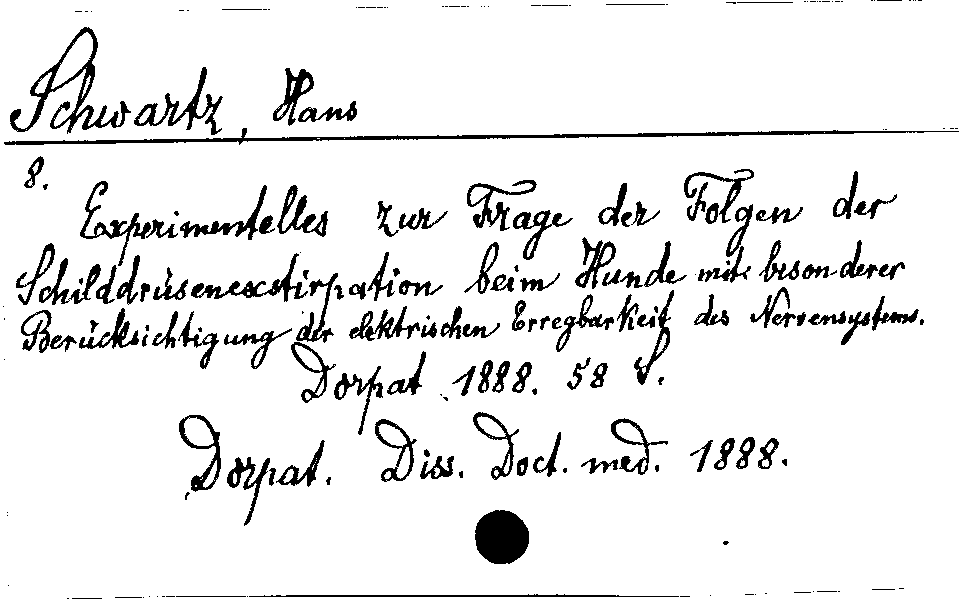 Schwartz, Hans
8.
Experimentelles zur Frage der Folgen der
Schilddrüsenexstirpation beim Hunde mit besonderer
Berücksichtigung der elektrischen Erregbarkeit des Nervensystems.
Dorpat 1888. 58 S.
Dorpat. Diss. Doct. med. 1888.